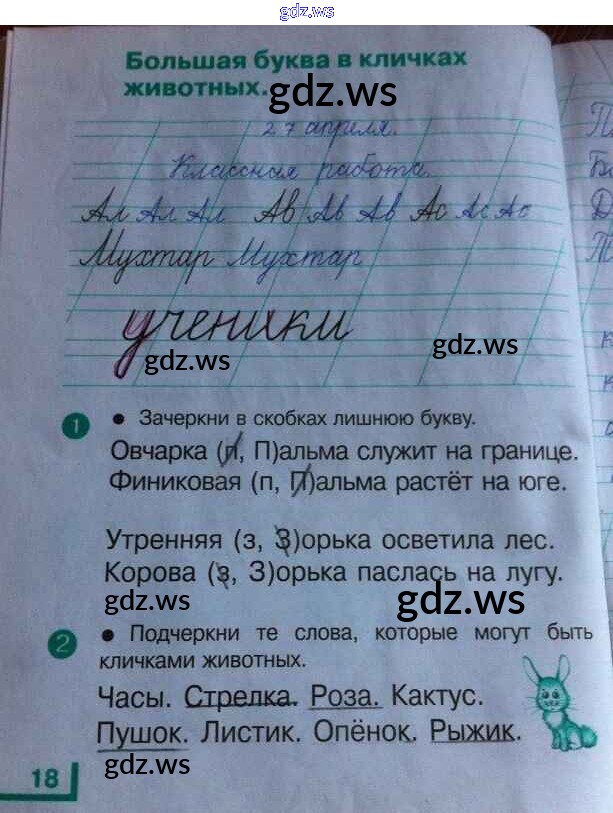 gdz.ws
Большая буква в кличках
животных.
gdz.ws
27 апреля.
Классная работа.
Ал Ал Ал Ав Ав Ав Ас Ас Ас
Мухтар Мухтар
ученики
gdz.ws
gdz.ws
1 • Зачеркни в скобках лишнюю букву.
Овчарка (п, П)альма служит на границе.
Финиковая (п, П)альма растёт на юге.
Утренняя (з, З)орька осветила лес.
Корова (з, З)орька паслась на лугу.
gdz.ws
gdz.ws
2 • Подчеркни те слова, которые могут быть
кличками животных.
Часы. Стрелка. Роза. Кактус.
Пушок. Листик. Опёнок. Рыжик.
gdz.ws
18